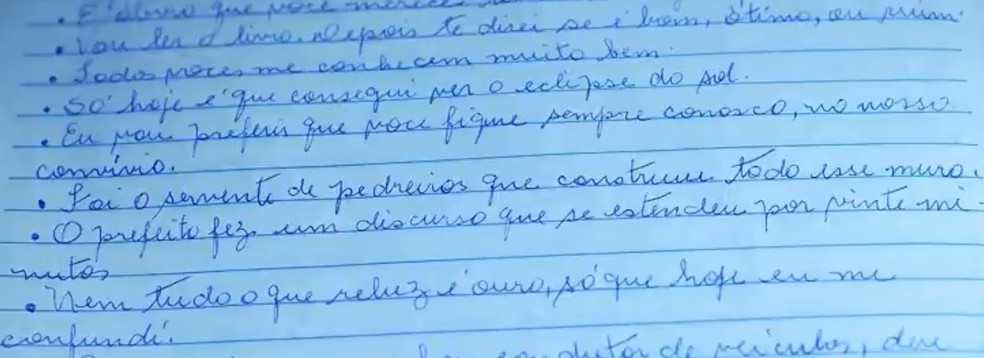 que você
• Vou ler o livro. Depois te direi se é bom, ótimo, ou ruim.
• Todos voces me conhecem muito bem.
• Só hoje é que consegui ver o eclipse do sol.
• Eu vou preferir que voce fique sempre conosco, no nosso
convívio.
• Foi o servente de pedreiros que construiu todo esse muro.
• O prefeito fez um discurso que se estendeu por vinte mi-
nutos
• Nem tudo o que reluz é ouro, só que hoje eu me
confundi.
condutor de veiculos, deve